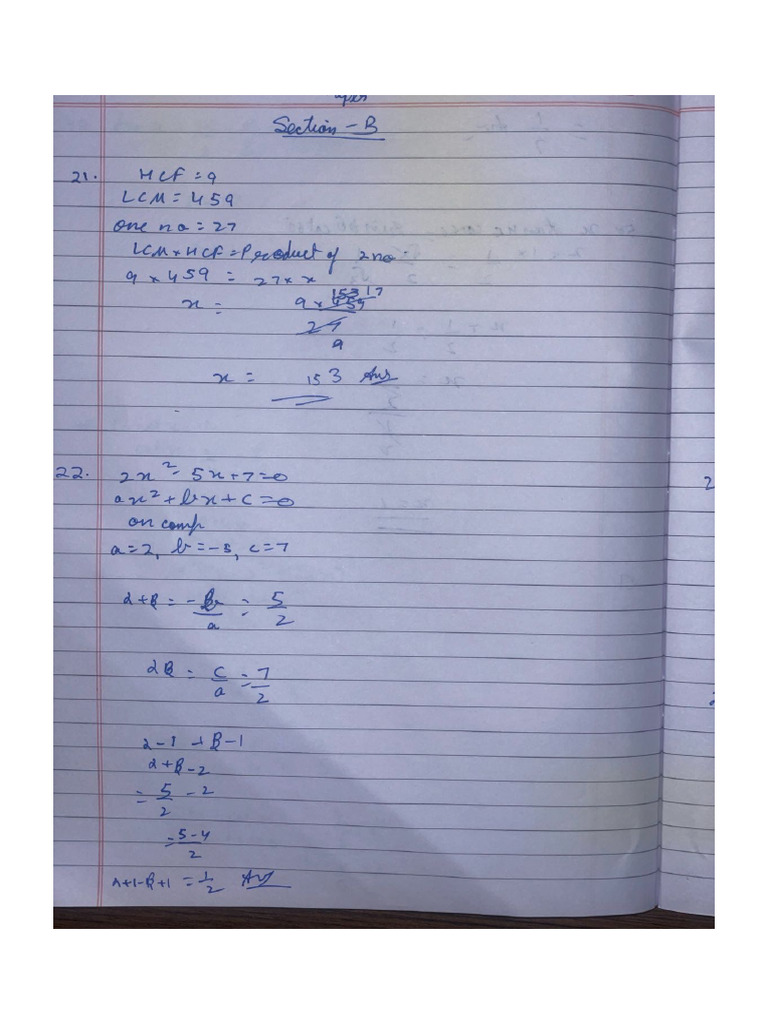 Section - B
21. HCF = 9
LCM = 459
one no = 27
LCM × HCF = Product of 2 no.
9 × 459 = 27 × x
x = 9 × 459 153 17
27
9
x = 153 Ans
22. 2x² - 5x + 7 = 0
ax² + bx + c = 0
on comp
a = 2, b = -5, c = 7
α + β = -b/a = 5/2
αβ = c/a = 7/2
α - 1 + β - 1
α + β - 2
= 5/2 - 2
= 5 - 4/2
α + 1 - β + 1 = 1/2 Ans